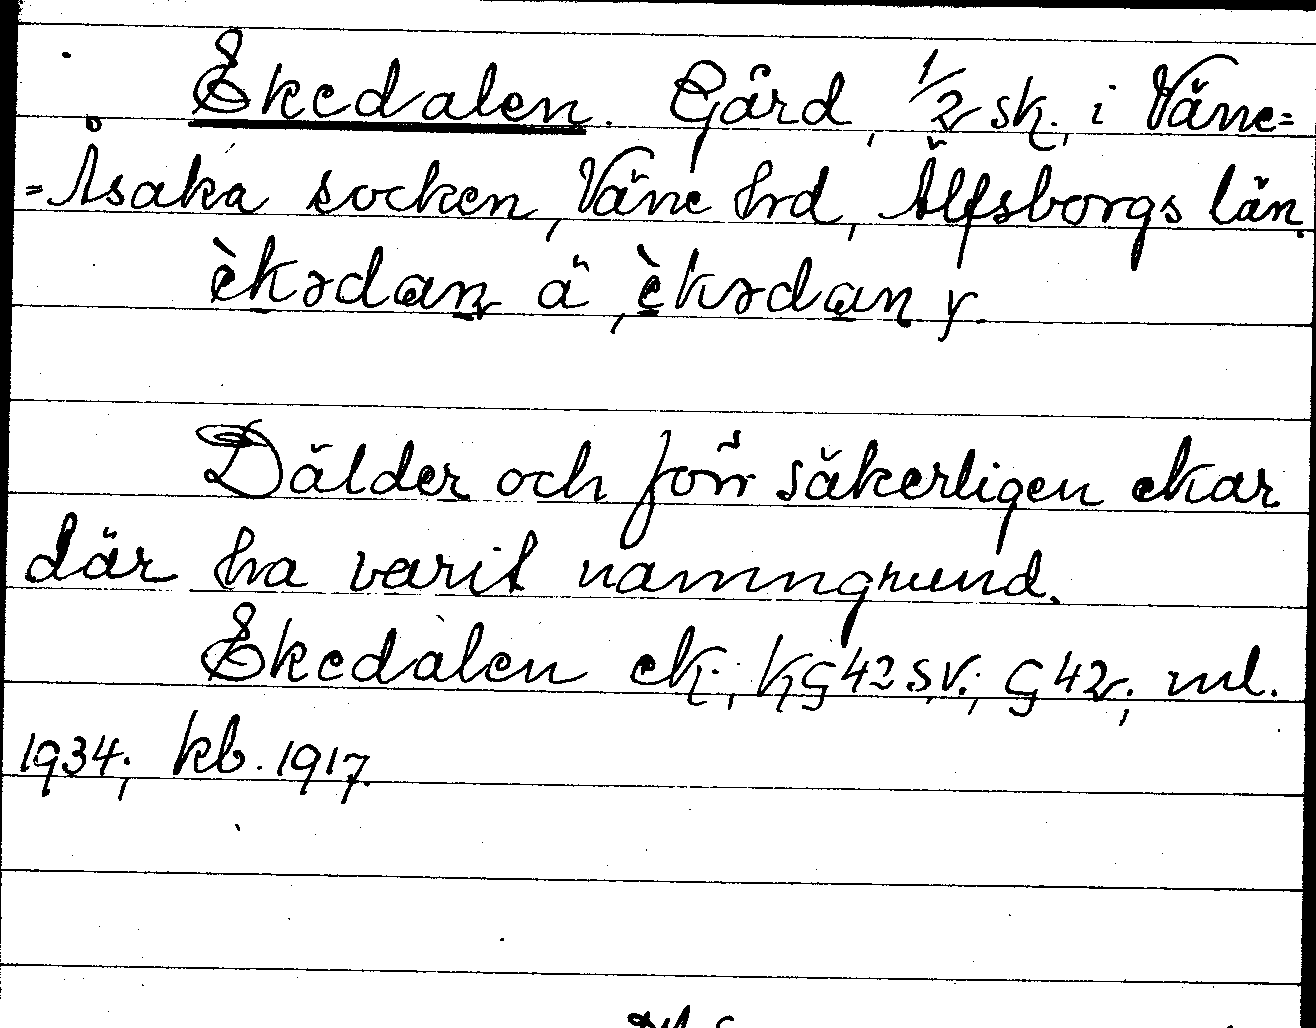 Ekedalen. Gård, 1/2 sk., i Väne=
=Åsaka socken, Väne hrd, Älfsborgs län.
èkədan ä, èkədan y.
Dälder och förr säkerligen ekar
där ha varit namngrund.
Ekedalen ek.; KG 42 s.v.; G 42; ml.
1934; kb. 1917.